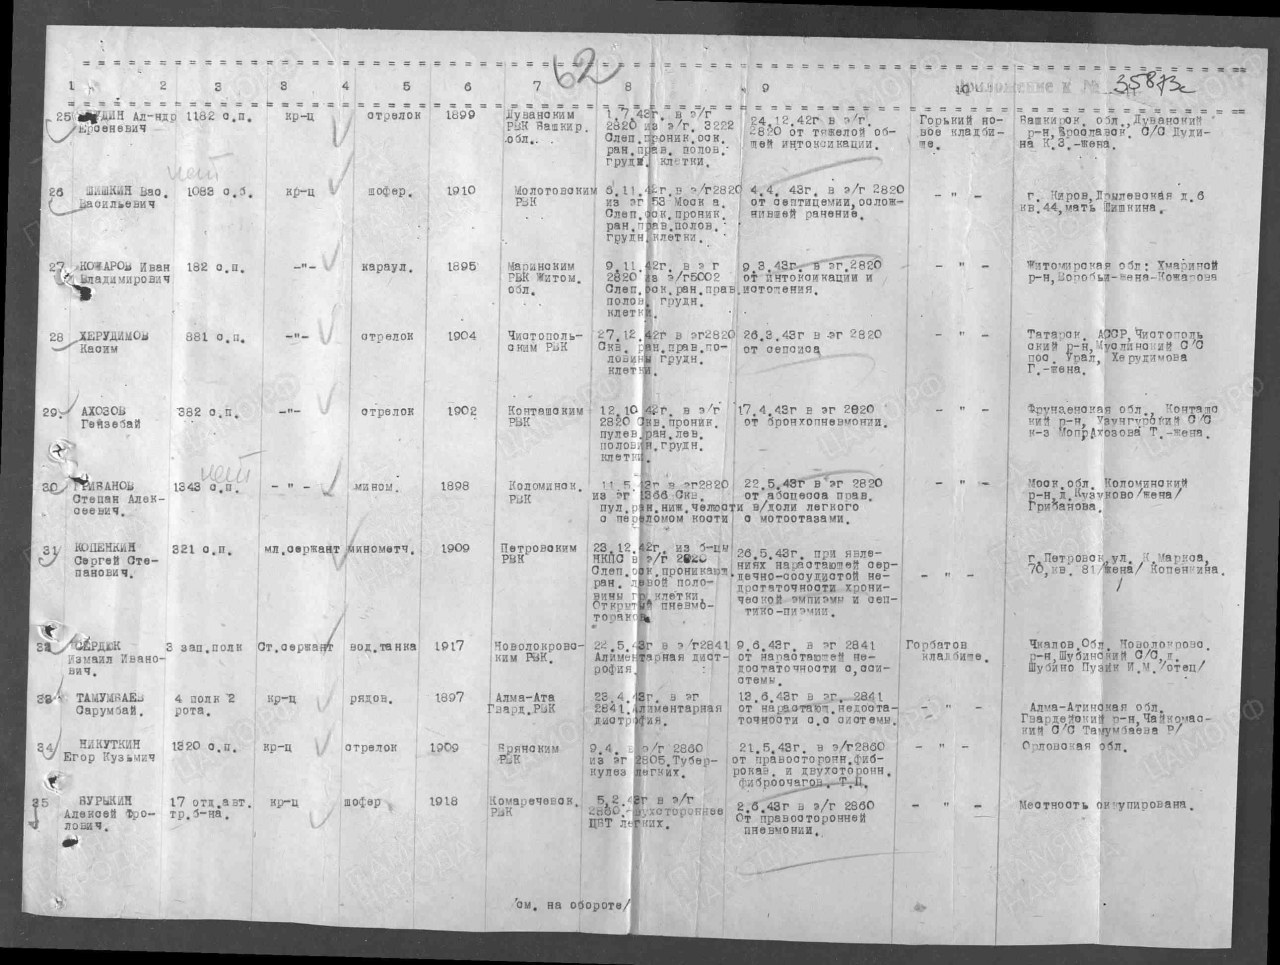 62
Приложение к № 35873с
1 2 3 3 4 5 6 7 8 9 10
25 Ал-ндр 1182 с.п. кр-ц стрелок 1899 Дуванским 1.7.43г. в э/г 24.12.42г в э/г. Горький но- Башкирск. обл., Дуванский
РВК Башкир. 2820 из э/г. 3222 2820 от тяжелой об- вое кладби- р-н, Ярославск. С/С Дуди-
обл. Слеп.проник.оск. щей интоксикации. ще. на К.З.-жена.
ран.прав. полов.
грудн. клетки.
нет
26 ШИШКИН Вас. 1083 с.б. кр-ц шофер. 1910 Молотовским 6.11.42г. в э/г2820 4.4. 43г. в э/г 2820 - " - г. Киров, д.6
Васильевич РВК из эг 53 Москва. от септицемии,ослож- кв.44,мать Шишкина.
Слеп.оск.проник. нившей ранение.
ран.прав.полов.
грудн.клетки.
27 КОЖАРОВ Иван 182 с.п. -"- караул. 1895 Маринским 9.11.42г. в э г 9.3.43г. в эг.2820 - " - Житомирская обл: Хмариной
Владимирович РВК Житом. 2820 из э/г5002 от интоксикации и р-н,Воробьи-жена-Кожарова
обл. Слеп.оск.ран.прав.истощения.
полов. грудн.
клетки.
28 ХЕРУДИМОВ 881 с.п. -"- стрелок 1904 Чистополь- 27.12.42г в эг2820 26.3.43г в эг 2820 - " - Татарск. АССР,Чистополь
Касим ским РВК Скв. ран.прав.по- от сепсиса ский р-н,Муслинский С/С
ловины грудн. пос. Урал, Херудимова
клетки. Г.-жена.
29. АХОЗОВ 382 с.п. -"- стрелок 1902 Конташским 12.10.42г. в э/г 17.4.43г в эг 2820 - " - Фрунзенская обл., Конташс
Гейзебай РВК 2820 Скв.проник. от бронхопневмонии. кий р-н, Узунгурский С/С
пулев.ран.лев. к-з Мопр Ахозова Т.-жена.
половин.грудн.
клетки.
нет
30 ГРИБАНОВ 1343 с.п. - " - мином. 1898 Коломинск. 11.5.43г. в эг2820 22.5.43г. в эг 2820 - " - Моск.обл. Коломинский
Степан Алек- РВК из эг 1366 Скв. от абсцесса прав. р-н,д.Кузуково/жена/
сеевич. пул.ран.ниж.челюсти в/доли легкого Грибанова.
с переломом кости с мотоотазами.
31 КОПЕНКИН 321 с.п. мл.сержант минометч. 1909 Петровским 23.12.42г. из б-цы 26.5.43г. при явле- г.Петровск,ул. К.Маркса,
Сергей Сте- РВК НКПС в э/г 2820 ниях нарастающей сер- 70,кв. 81/жена/ Копенкина.
панович. Слеп.оск.проникающ. дечно-сосудистой не- - " -
ран. левой поло- достаточности хрони-
вины гр.клетки. ческой эмпиэмы и сеп-
Открытый пневмо- тико-пиэмии.
торакс.
32 СЕРДЮК 3 зап.полк Ст.сержант вод.танка 1917 Новолокровс- 22.5.43г в э/г2841 9.6.43г. в эг 2841 Горбатов Чкалов.Обл. Новолокровс.
Измаил Ивано- ким РВК. Алиментарная дист- от нарастающей не- кладбище. р-н,Шубинский С/С,д.
вич. рофия. достаточности с,сси- Шубино Пузик И.М./отец/
стемы.
33 ТАМУМБАЕВ 4 полк 2 кр-ц рядов. 1897 Алма-Ата 23.4.43г. в эг 13.6.43г в эг. 2841 Алма-Атинская обл.
Сарумбай. рота. Гвард.РВК 2841.Алиментарная от нарастающ.недоста- - " - Гвардейский р-н,Чайкомас-
дистрофия. точности с.с системы. кий С/С Тамумбаева Р/
34 НИКУТКИН 1320 с.п. кр-ц стрелок 1909 Брянским 9.4. в э/г 2860 21.5.43г. в э/г2860 - " - Орловская обл.
Егор Кузьмич РВК из эг 2805.Тубер- от правосторонн.фиб-
кулез легких. рокав. и двухсторонн.
фиброочагов. Т.Ц.
35 БУРЫКИН 17 отд.авт. кр-ц шофер 1918 Комаречевск. 5.2.43г в э/г 2.6.43г в э/г 2860 - " - Местность оккупирована.
Алексей Фро- тр.б-на. РВК 2860.Двухстороннее От правосторонней
лович. ЦВТ легких. пневмонии.
см. на обороте/